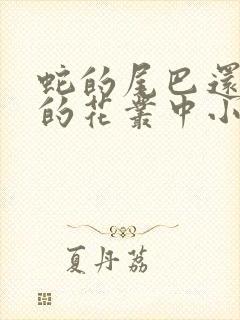 蛇的尾巴還
的花叢中小
夏丹荔